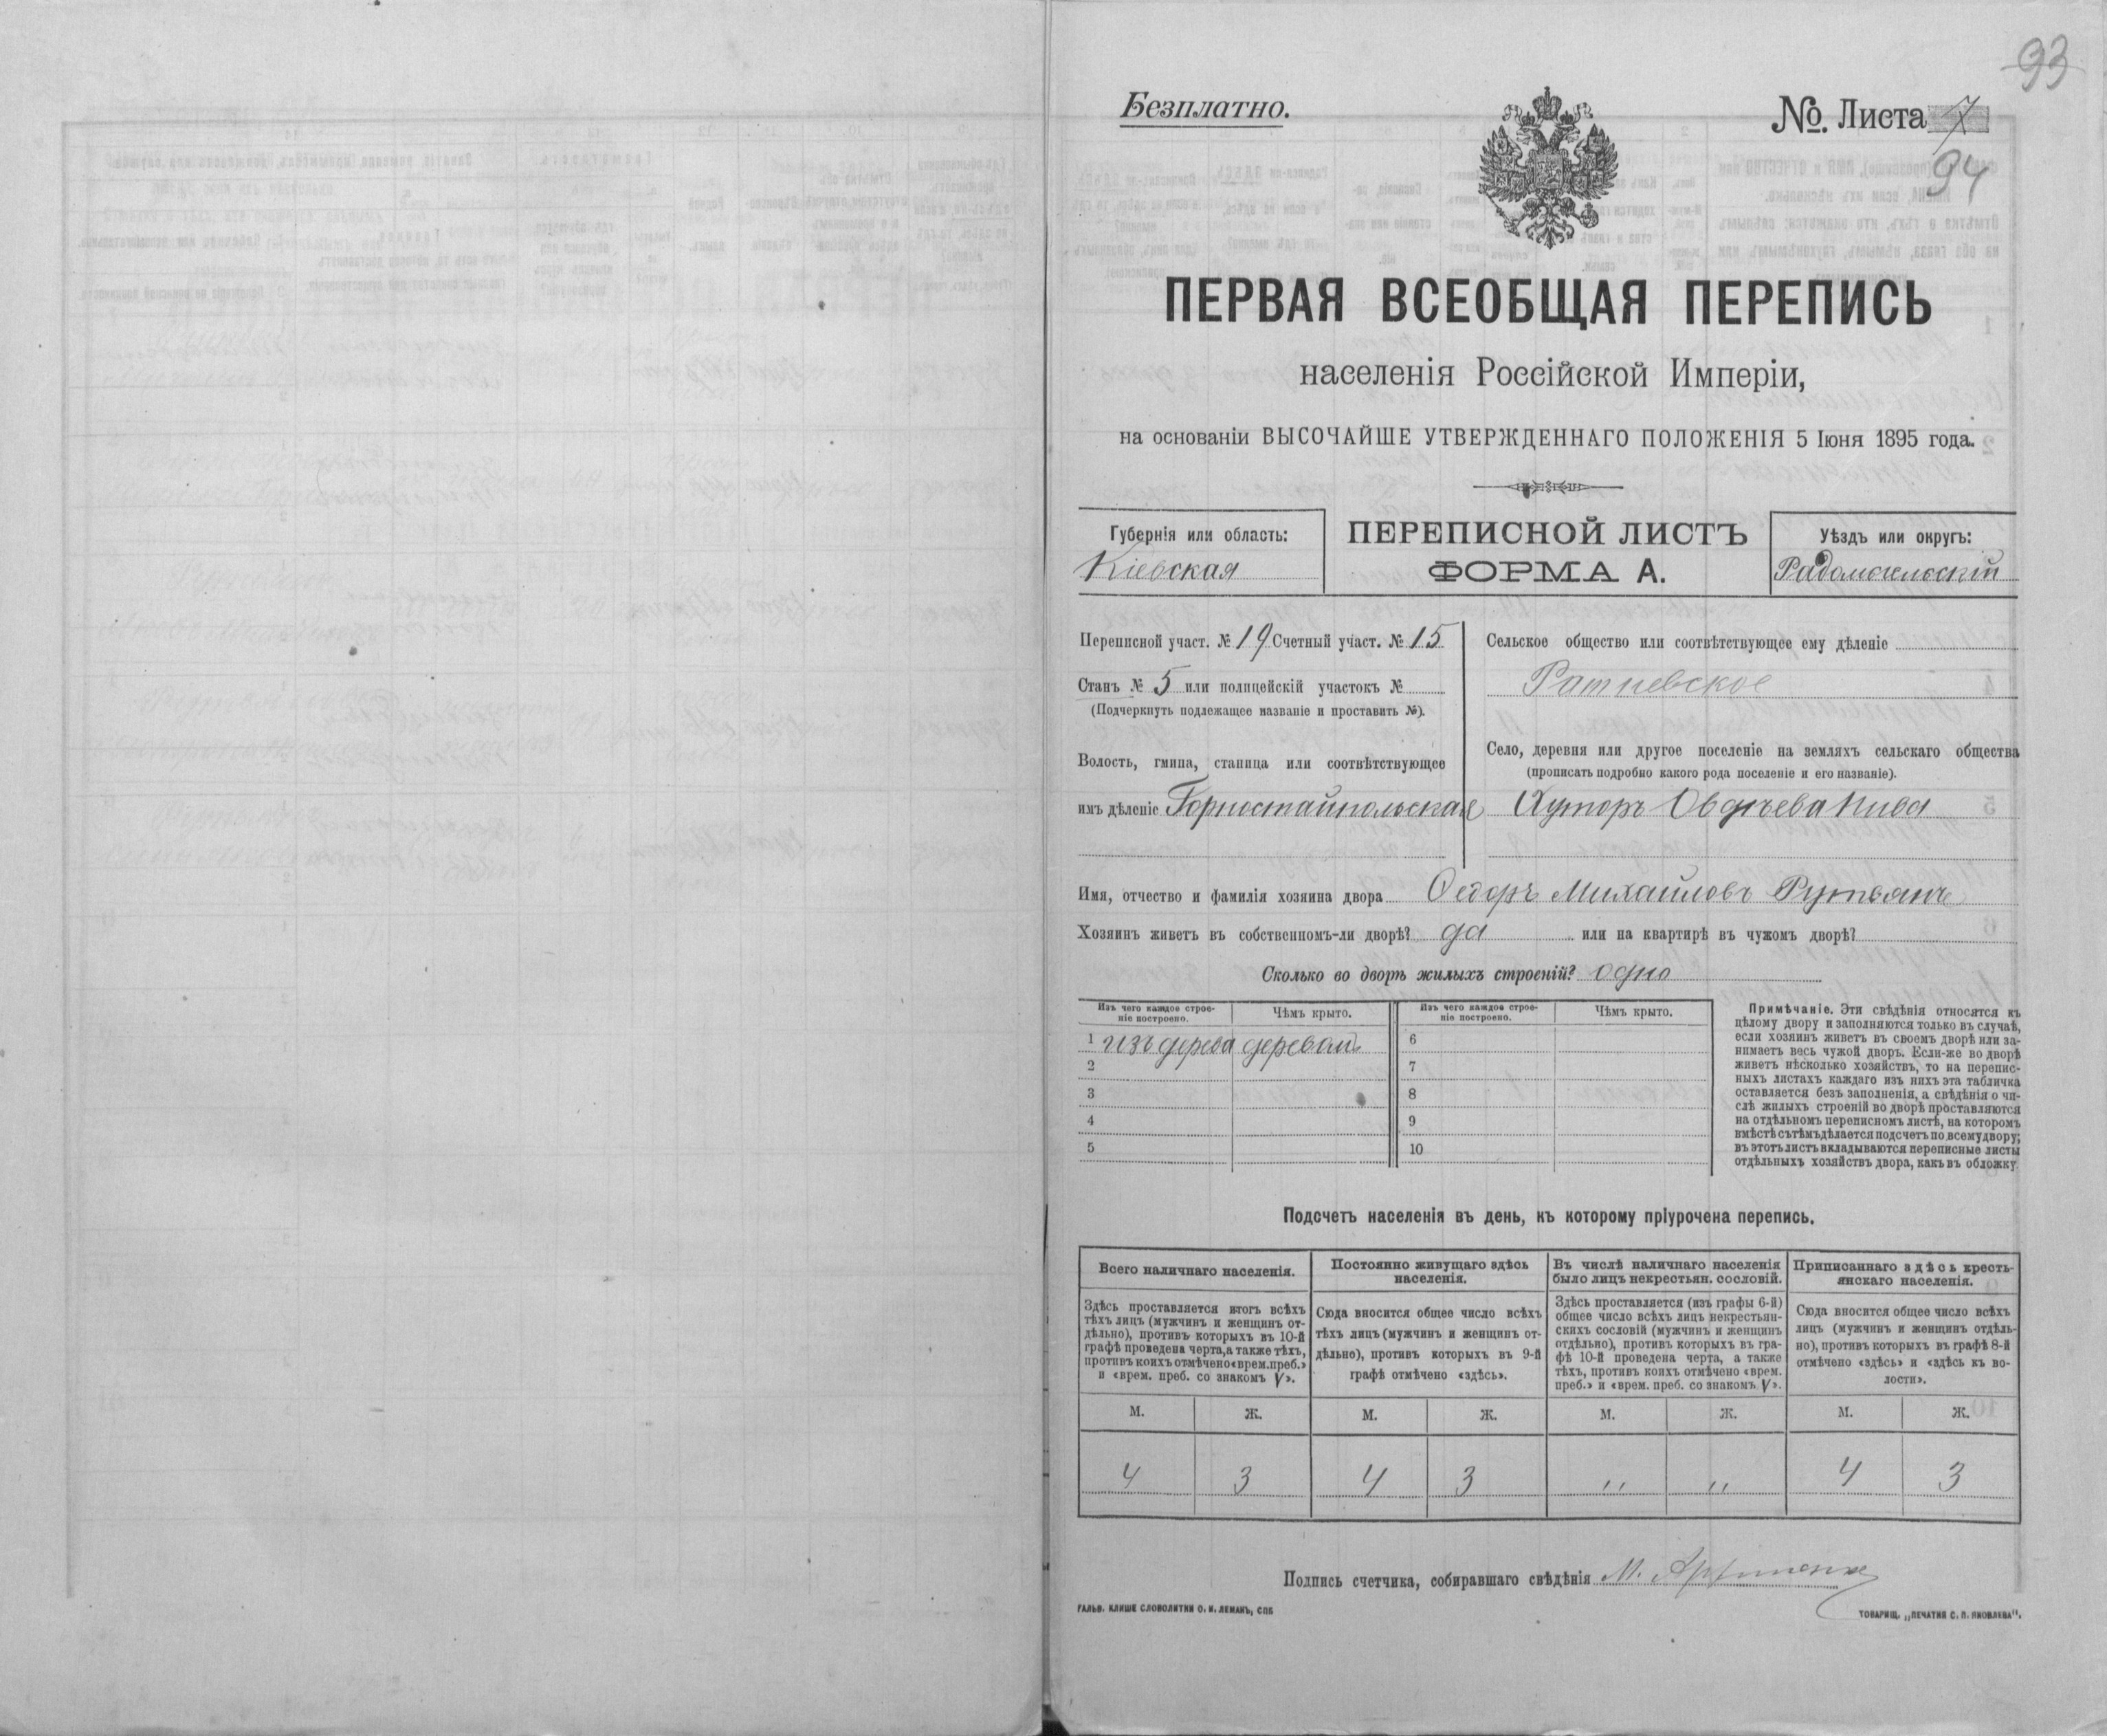 93
Безплатно.
№. Листа 7
94
ПЕРВАЯ ВСЕОБЩАЯ ПЕРЕПИСЬ
населенія Россійской Имперіи,
на основаніи ВЫСОЧАЙШЕ УТВЕРЖДЕННАГО ПОЛОЖЕНІЯ 5 Іюня 1895 года.
Губернія или область:
Кіевская
ПЕРЕПИСНОЙ ЛИСТЪ
ФОРМА А.
Уѣздъ или округъ:
Радомысльскій
Переписной участ. № 19 Счетный участ. № 15
Станъ № 5 или полицейскій участокъ №
(Подчеркнуть подлежащее названіе и проставить №).
Волость, гмина, станица или соотвѣтствующее
имъ дѣленіе Горностайпольская
Сельское общество или соотвѣтствующее ему дѣленіе
Ратиевское
Село, деревня или другое поселеніе на земляхъ сельскаго общества
(прописать подробно какого рода поселеніе и его названіе).
Хуторъ Овдѣева Нива
Имя, отчество и фамилія хозяина двора Ѳедоръ Михайловъ
Хозяинъ живетъ въ собственномъ-ли дворѣ? да или на квартирѣ въ чужомъ дворѣ?
Сколько во дворѣ жилыхъ строеній? одно
Изъ чего каждое строе-
ніе построено.
Чѣмъ крыто.
Изъ чего каждое строе-
ніе построено.
Чѣмъ крыто.
1 изъ дерева деревомъ 6
2 7
3 8
4 9
5 10
Примѣчаніе. Эти свѣдѣнія относятся къ
цѣлому двору и заполняются только въ случаѣ,
если хозяинъ живетъ въ своемъ дворѣ или за-
нимаетъ весь чужой дворъ. Если-же во дворѣ
живетъ нѣсколько хозяйствъ, то на перепис-
ныхъ листахъ каждаго изъ нихъ эта табличка
оставляется безъ заполненія, а свѣдѣнія о чи-
слѣ жилыхъ строеній во дворѣ проставляются
на отдѣльномъ переписномъ листѣ, на которомъ
вмѣстѣ съ тѣмъ дѣлается подсчетъ по всему двору;
въ этотъ листъ вкладываются переписные листы
отдѣльныхъ хозяйствъ двора, какъ въ обложку.
Подсчетъ населенія въ день, къ которому пріурочена перепись.
Всего наличнаго населенія.
Здѣсь проставляется итогъ всѣхъ
тѣхъ лицъ (мужчинъ и женщинъ от-
дѣльно), противъ которыхъ въ 10-й
графѣ проведена черта, а также тѣхъ,
противъ коихъ отмѣчено «врем. преб.»
и «врем. преб. со знакомъ V».
Постоянно живущаго здѣсь
населенія.
Сюда вносится общее число всѣхъ
тѣхъ лицъ (мужчинъ и женщинъ от-
дѣльно), противъ которыхъ въ 9-й
графѣ отмѣчено «здѣсь».
Въ числѣ наличнаго населенія
было лицъ некрестьян. сословій.
Здѣсь проставляется (изъ графы 6-й)
общее число всѣхъ лицъ некрестьян-
скихъ сословій (мужчинъ и женщинъ
отдѣльно), противъ которыхъ въ гра-
фѣ 10-й проведена черта, а также
тѣхъ, противъ коихъ отмѣчено «врем.
преб.» и «врем. преб. со знакомъ V».
Приписаннаго здѣсь кресть-
янскаго населенія.
Сюда вносится общее число всѣхъ
лицъ (мужчинъ и женщинъ отдѣль-
но), противъ которыхъ въ графѣ 8-й
отмѣчено «здѣсь» и «здѣсь къ во-
лости».
М. Ж. М. Ж. М. Ж. М. Ж.
4 3 4 3 " " 4 3
Подпись счетчика, собиравшаго свѣдѣнія М.
ГАЛЬВ. КЛИШЕ СЛОВОЛИТНИ О. И. ЛЕМАНЪ, СПБ
ТОВАРИЩ. „ПЕЧАТНЯ С. П. ЯКОВЛЕВА".